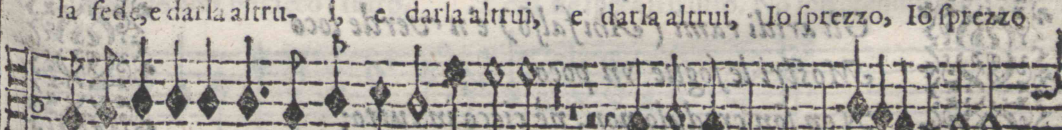 la fede, e darla altru- i, e darla altrui, e darla altrui, Io sprezzo, Io sprezzo